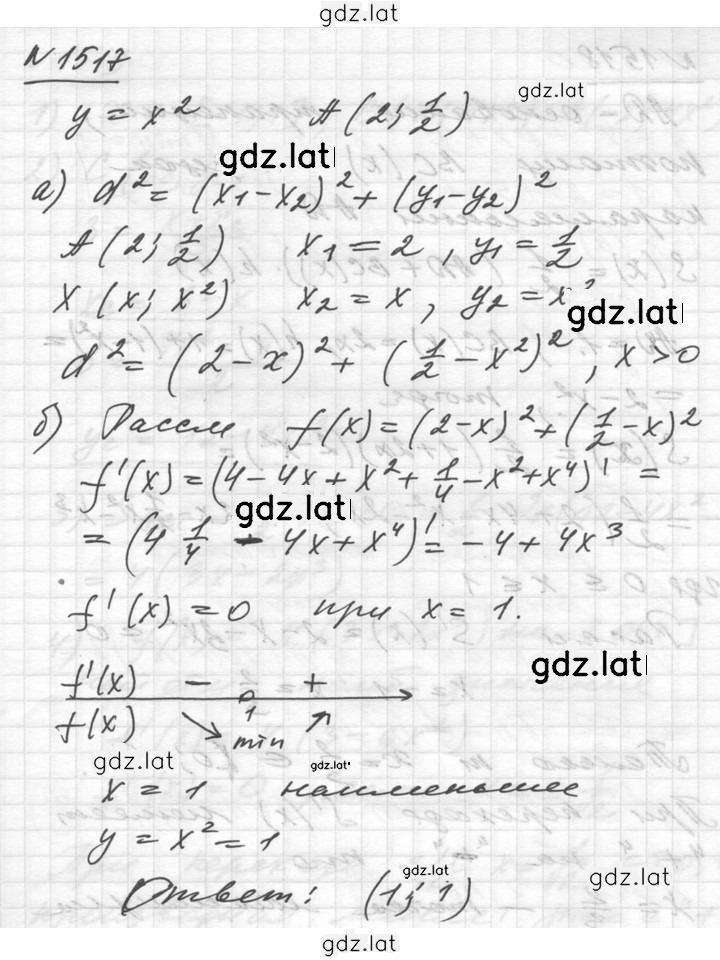 gdz.lat
N 1517
y = x² A (2; 1/2)
gdz.lat
gdz.lat
а) d² = (x₁-x₂)² + (y₁-y₂)²
A (2; 1/2) x₁ = 2, y₁ = 1/2
X (x; x²) x₂ = x, y₂ = x²
gdz.lat
d² = (2-x)² + (1/2 - x²)², x > 0
б) Рассм f(x) = (2-x)² + (1/2 - x)²
f'(x) = (4 - 4x + x² + 1/4 - x² + x⁴)' =
gdz.lat
= (4 1/4 - 4x + x⁴)' = -4 + 4x³
f'(x) = 0 при x = 1.
gdz.lat
f'(x) - +
f(x) 1 min
gdz.lat
gdz.lat
x = 1 наименьшее
y = x² = 1
gdz.lat
gdz.lat
Ответ: (1; 1)
gdz.lat